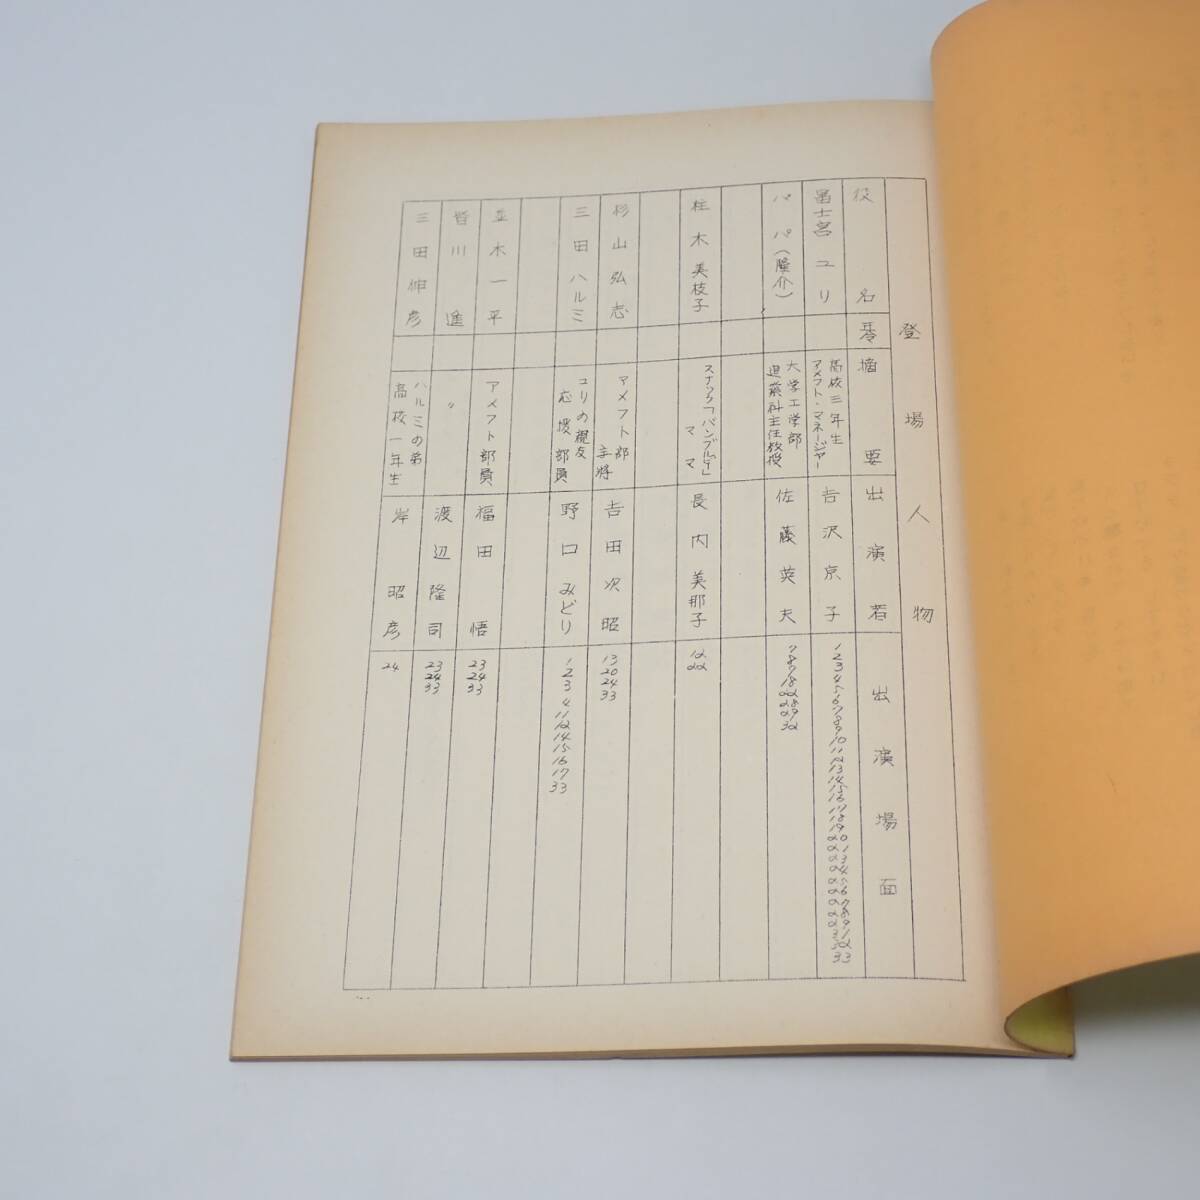 登場人物
役名
年令
摘要
出演者
出演場面
冨士宮ユリ
高校三年生
アメフト・マネージャー
吉沢京子
1
2
3
4
5
6
7
8
9
10
11
12
13
14
15
16
17
18
19
20
21
23
24
25
26
27
28
29
31
32
33
パパ(隆介)
大学工学部
造築科主任教授
佐藤英夫
18
22
28
29
32
桂木美枝子
ママ
長内美那子
12
22
杉山弘志
アメフト部
主将
吉田次昭
13
20
24
33
三田ハルミ
ユリの親友
応援部員
野口みどり
1
2
3
4
11
12
14
15
16
17
33
並木一平
アメフト部員
福田悟
23
24
33
皆川進
〃
渡辺隆司
23
24
33
三田伸彦
ハルミの弟
高校一年生
岸昭彦
24